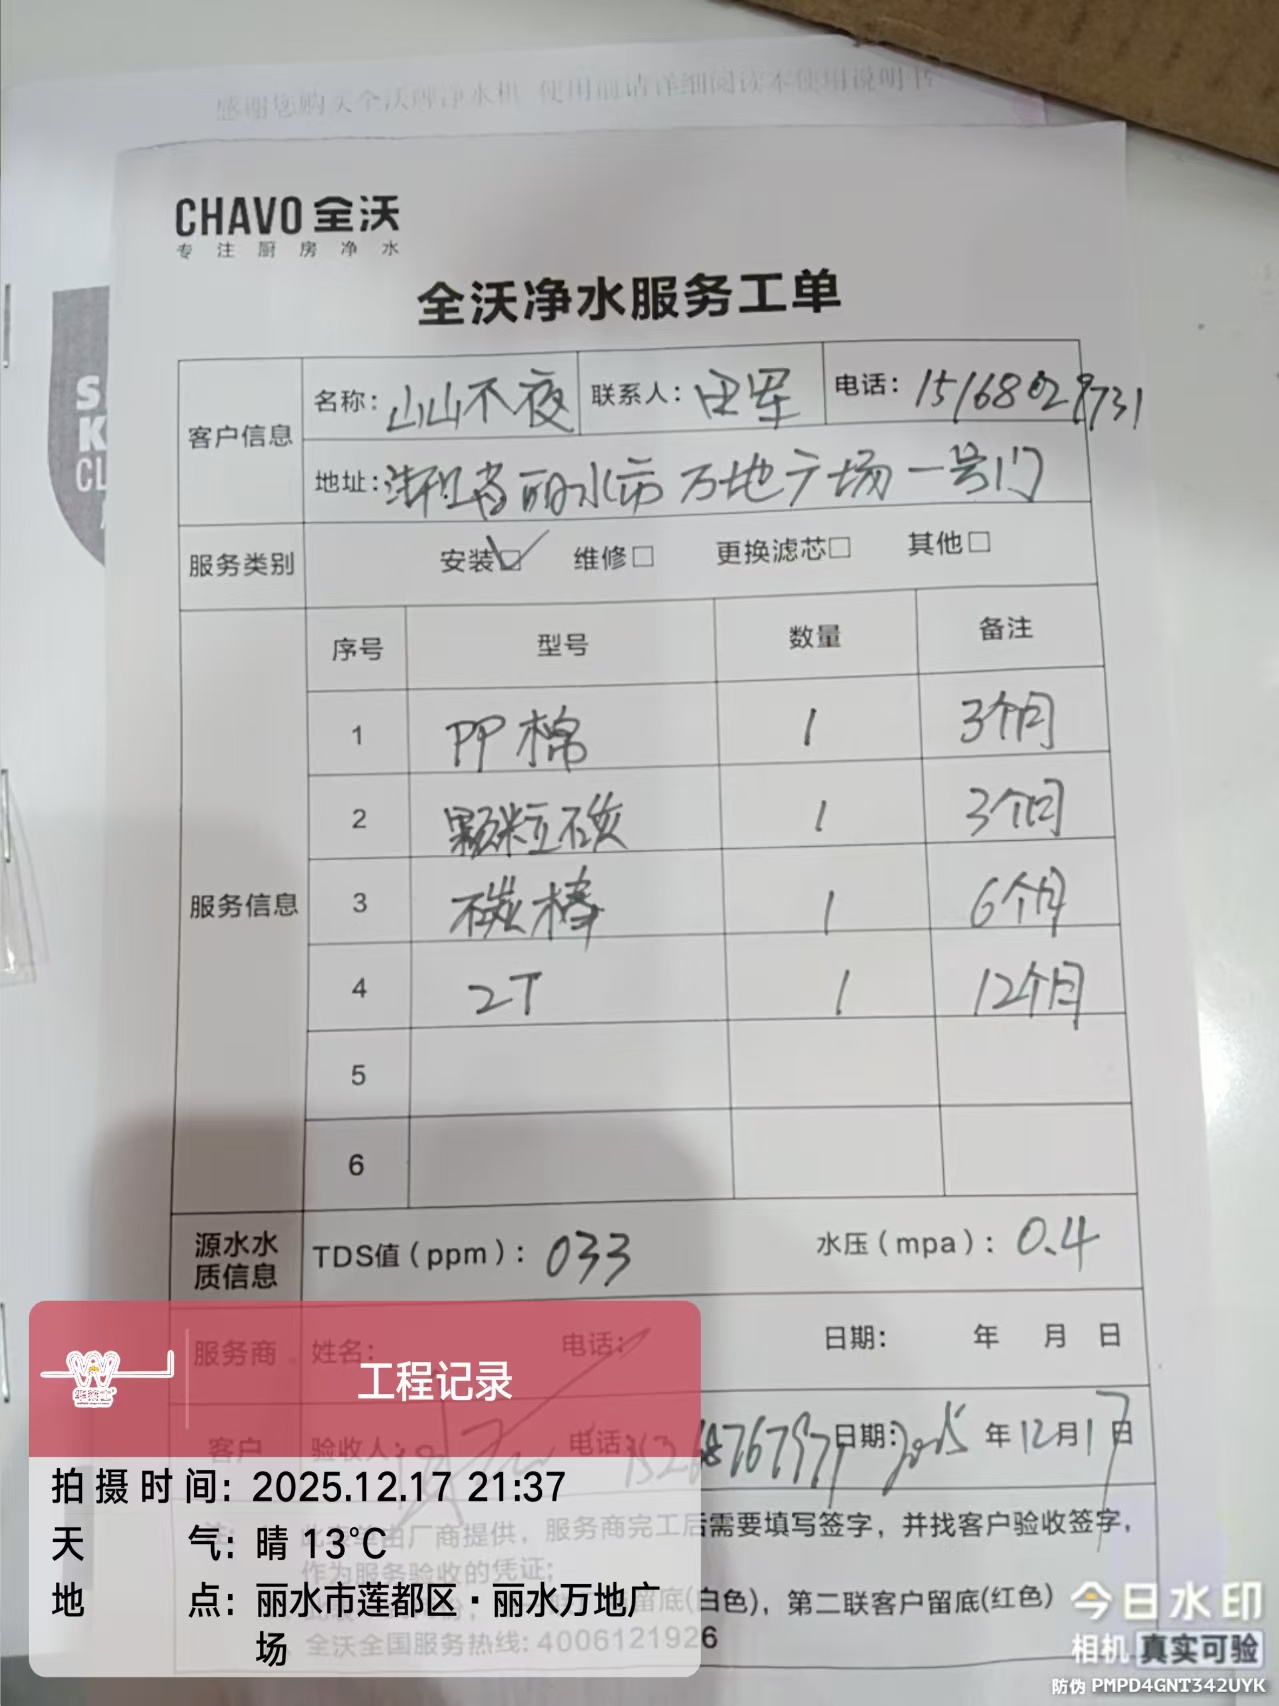 感谢您购买全沃牌净水机 使用前请详细阅读本使用说明书
CHAVO 全沃
专注厨房净水
全沃净水服务工单
客户信息 名称: 山山不夜 联系人: 田军 电话: 15168029731
地址: 浙江省丽水市万地广场一号门
服务类别 安装☑ 维修□ 更换滤芯□ 其他□
服务信息
序号 型号 数量 备注
1 PP棉 1 3个月
2 颗粒碳 1 3个月
3 碳棒 1 6个月
4 2T 1 12个月
5
6
源水水质信息 TDS值（ppm）: 033 水压（mpa）: 0.4
服务商 姓名: 电话: 日期: 年 月 日
客户 验收人: 电话: 日期: 2025 年 12 月 17 日
注: 此表单由厂商提供，服务商完工后需要填写签字，并找客户验收签字，
作为服务验收的凭证;
留底(白色)，第二联客户留底(红色)
全沃全国服务热线: 4006121926
工程记录
拍摄时间: 2025.12.17 21:37
天气: 晴 13°C
地点: 丽水市莲都区·丽水万地广场
今日水印
相机 真实可验
防伪 PMPD4GNT342UYK